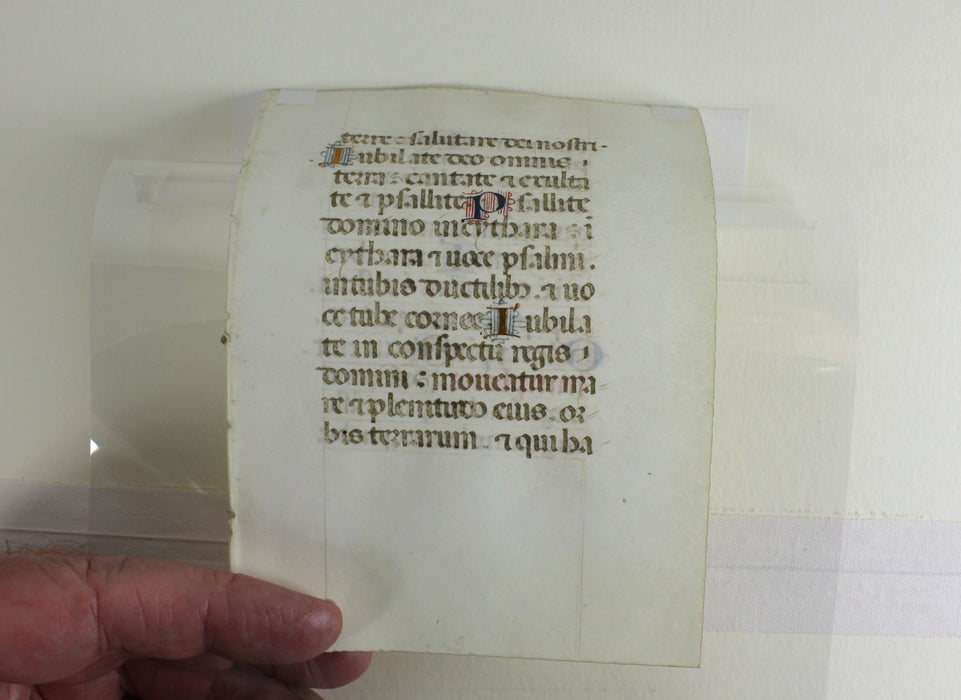 terre : salutare dei nostri.
Iubilate deo omnis
terra : cantate ⁊ exulta
te ⁊ psallite Psallite
domino in cythara : i
cythara ⁊ uoce psalmi.
in tubis ductilibꝫ . ⁊ uo
ce tube cornee Iubila
te in conspectu regis
domini : moueatur ma
re ⁊ plenitudo eius . or
bis terrarum . ⁊ qui ha